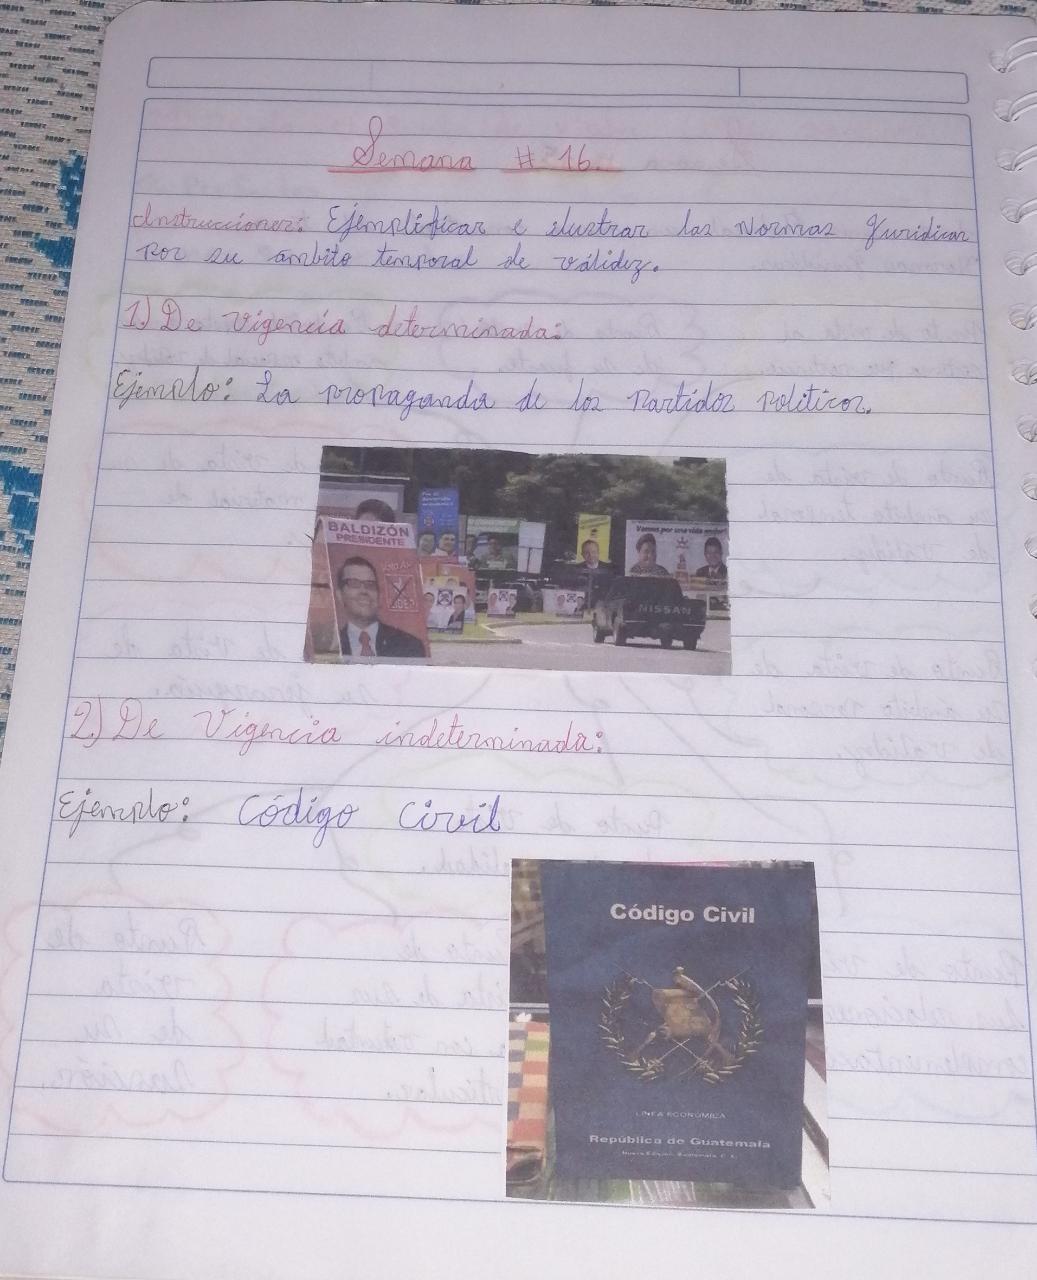 Semana # 16.
Instrucciones: Ejemplificar e ilustrar las Normas Juridicas
por su ámbito temporal de válidez.
1.) De Vigencia determinada:
Ejemplo: La propaganda de los Partidos politicos.
BALDIZÓN
PRESIDENTE
NISSAN
2.) De Vigencia indeterminada:
Ejemplo: Código Civil
Código Civil
LÍNEA ECONÓMICA
República de Guatemala